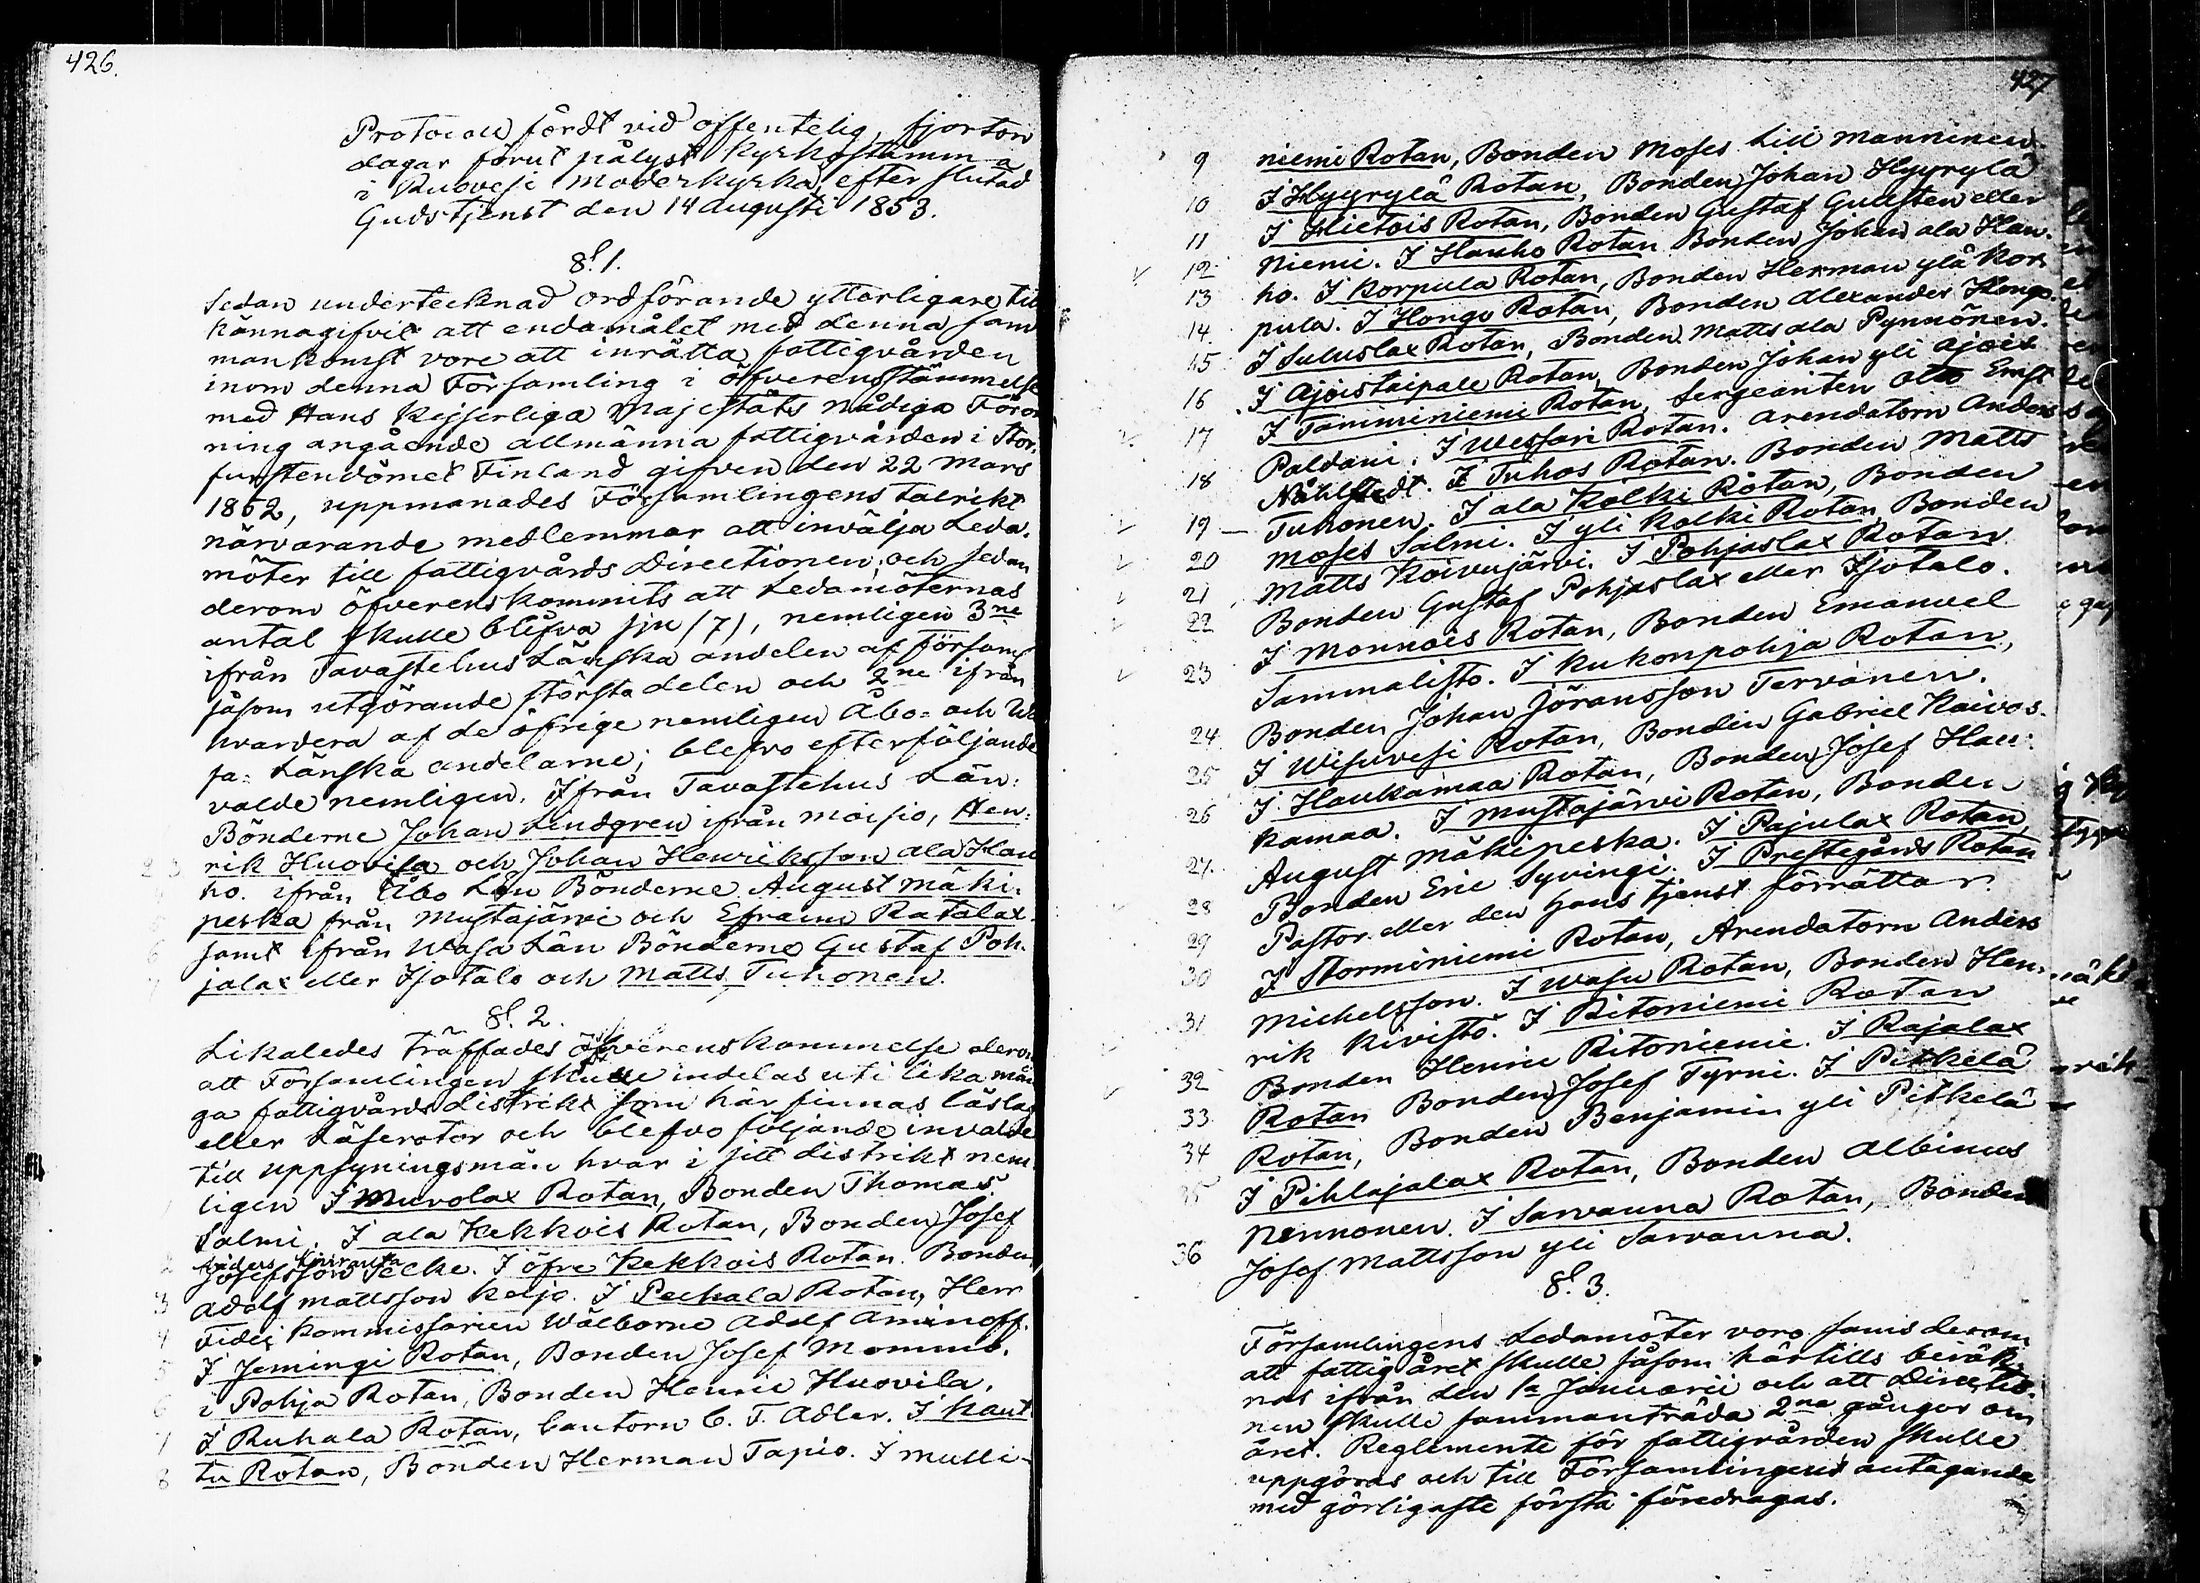 426.
Protocoll fördt vid offentelig, fjorton
dagar förut pålyst Kyrkostämma
i Ruovesi Moderkyrka, efter slutad
Gudstjenst den 14 Augusti 1853.
§. 1.
Sedan undertecknad ordförande ytterligare till
kännagifvit att endamålet med denna sam
mankomst vore att inrätta fattigvården
inom denna Församling i öfverensstämmelse
med Hans Kejserliga Majestäts nådiga Föror
ning angående allmänna fattigvården i Stor-
furstendömet Finland gifven den 22 Mars
1852, uppmanades Församlingens talrikt
närvarande medlemmar att invälja Leda-
möter till fattigvårds Directionen; och sedan
derom öfverenskommits att Ledamöternas
antal skulle blifva sju (7), nemligen 3ne
ifrån Tavastehus Länska andelen af Försam
såsom utgörande största delen och 2ne ifrån
hvardera af de öfrige nemligen Åbo- och Wa
sa- Länska andelarne; blefvo efterföljande
valde nemligen. Ifrån Tavastehus Län:
Bönderne Johan Lindgren ifrån Moisio, Hen-
2 3 rik Huovila och Johan Henriksson ala Hau
ho. ifrån Åbo Län Bönderne August Mäki-
peska från Mustajärvi och Efraim Ratalax
6 samt ifrån Wasa Län Bönderne Gustaf Poh-
7 jalax eller Isotalo och Matts Tuhonen.
§. 2.
Likaledes träffades öfverenskommelse derom
att Församlingen skulle indelas uti lika mån
ga fattigvårds distrikt som här finnas läslag
eller Läserotor och blefvo följande invalde
till uppsyningsmän hvar i sitt distrikt nem
ligen I Muvolax Rotan, Bonden Thomas
Salmi. I ala Kekkois Rotan, Bonden Josef
2 Josefsson Secke. I öfre Kekkois Rotan. Bonden
3 Adolf Mattsson Keijo. I Pekkala Rotan, Herr
4 Fidei Kommissarien Wälborne Adolf Aminoff.
5 I Jemingi Rotan, Bonden Josef Mommo.
6 i Pohja Rotan, Bonden Henric Huovila.
7 I Ruhala Rotan, Cantorn C. F. Adler. I Haut
8 tu Rotan, Bonden Herman Tapio. I Mulli-
427
9 niemi Rotan, Bonden Moses Lill Manninen.
10 I Hyyrylä Rotan, Bonden Johan Hyyrylä
11 I Hietois Rotan, Bonden Gustaf Gullsten eller
12 Niemi. I Hauho Rotan. Bonden Johan ala Hau-
13 ho. I Korpula Rotan, Bonden Herman ylä Kor
14. pula. I Hongo Rotan, Bonden Alexander Hongo.
15 I Suluslax Rotan, Bonden Matts ala Pynnönen.
16 I Ajostaipale Rotan, Bonden Johan yli Ajois
17 I Tamminiemi Rotan, Sergeanten Otto Ernst
18 Paldani. I Wessari Rotan. Arendatorn Anders
Nählstedt. I Tuhos Rotan. Bonden Matts
19 Tuhonen. I ala Kolki Rotan, Bonden
20 Moses Salmi. I yli Kolki Rotan Bonden
21 Matts Koivujärvi. I Pohjaslax Rotan
22 Bonden Gustaf Pohjaslax eller Isotalo.
I Monnois Rotan, Bonden Emanuel
23 Sammalisto. I Kukonpohja Rotan,
24 Bonden Johan Jöransson Tervanen.
25 I Wisuvesi Rotan, Bonden Gabriel Koivos-
26 I Haukamaa Rotan, Bonden Josef Hau-
kamaa. I Mustajärvi Rotan, Bonden
27. August Mäkipeska. I Pajulax Rotan,
28 Bonden Eric Syvingi. I Prestegårds Rotan
29 Pastor eller den hans tjenst förrättar.
30 I Storminiemi Rotan, Arendatorn Anders
31 Michelsson. I Wasu Rotan, Bonden Hen-
rik Kivistö. I Ritoniemi Rotan
32 Bonden Henric Ritoniemi. I Rajalax
33 Rotan Bonden Josef Tyrni. I Pitkelä
34 Rotan, Bonden Benjamin yli Pitkelä
35 I Pihlajalax Rotan, Bonden Albinus
Nennonen. I Sarvanna Rotan, Bonden
36 Josef Mattsson yli Sarvanna.
§. 3.
Församlingens Ledamöter voro sams derom
att fattig året skulle såsom härtills beräk-
nas ifrån den 1a Januarii och att Directio-
nen skulle sammanträda 2ne gånger om
året. Reglemente för fattigvården skulle
uppgöras och till Församlingens antagande
med görligaste första föredragas.